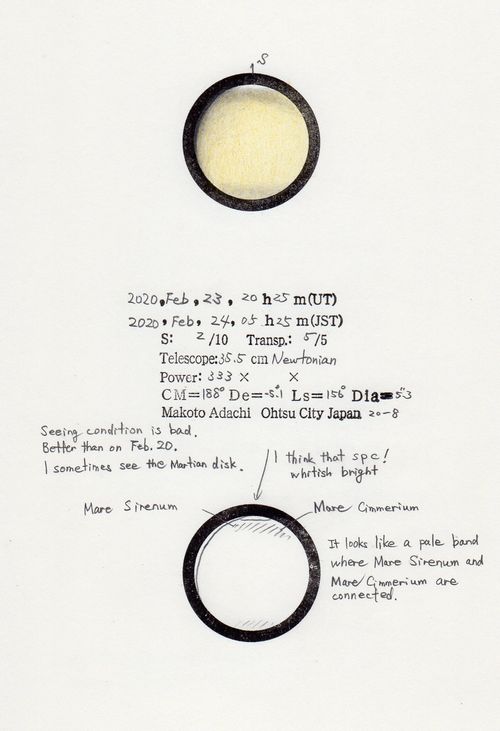 S
2020, Feb, 23, 20 h 25 m(UT)
2020, Feb, 24, 05 h 25 m(JST)
S: 2/10 Transp.: 5/5
Telescope: 35.5 cm Newtonian
Power: 333 × ×
CM=188° De=-5.1° Ls=156° Dia=5.3"
Makoto Adachi Ohtsu City Japan 20-8
Seeing condition is bad.
Better than on Feb. 20.
I sometimes see the Martian disk.
I think that spc!
whitish bright
Mare Sirenum
Mare Cimmerium
It looks like a pale band
where Mare Sirenum and
Mare Cimmerium are
connected.